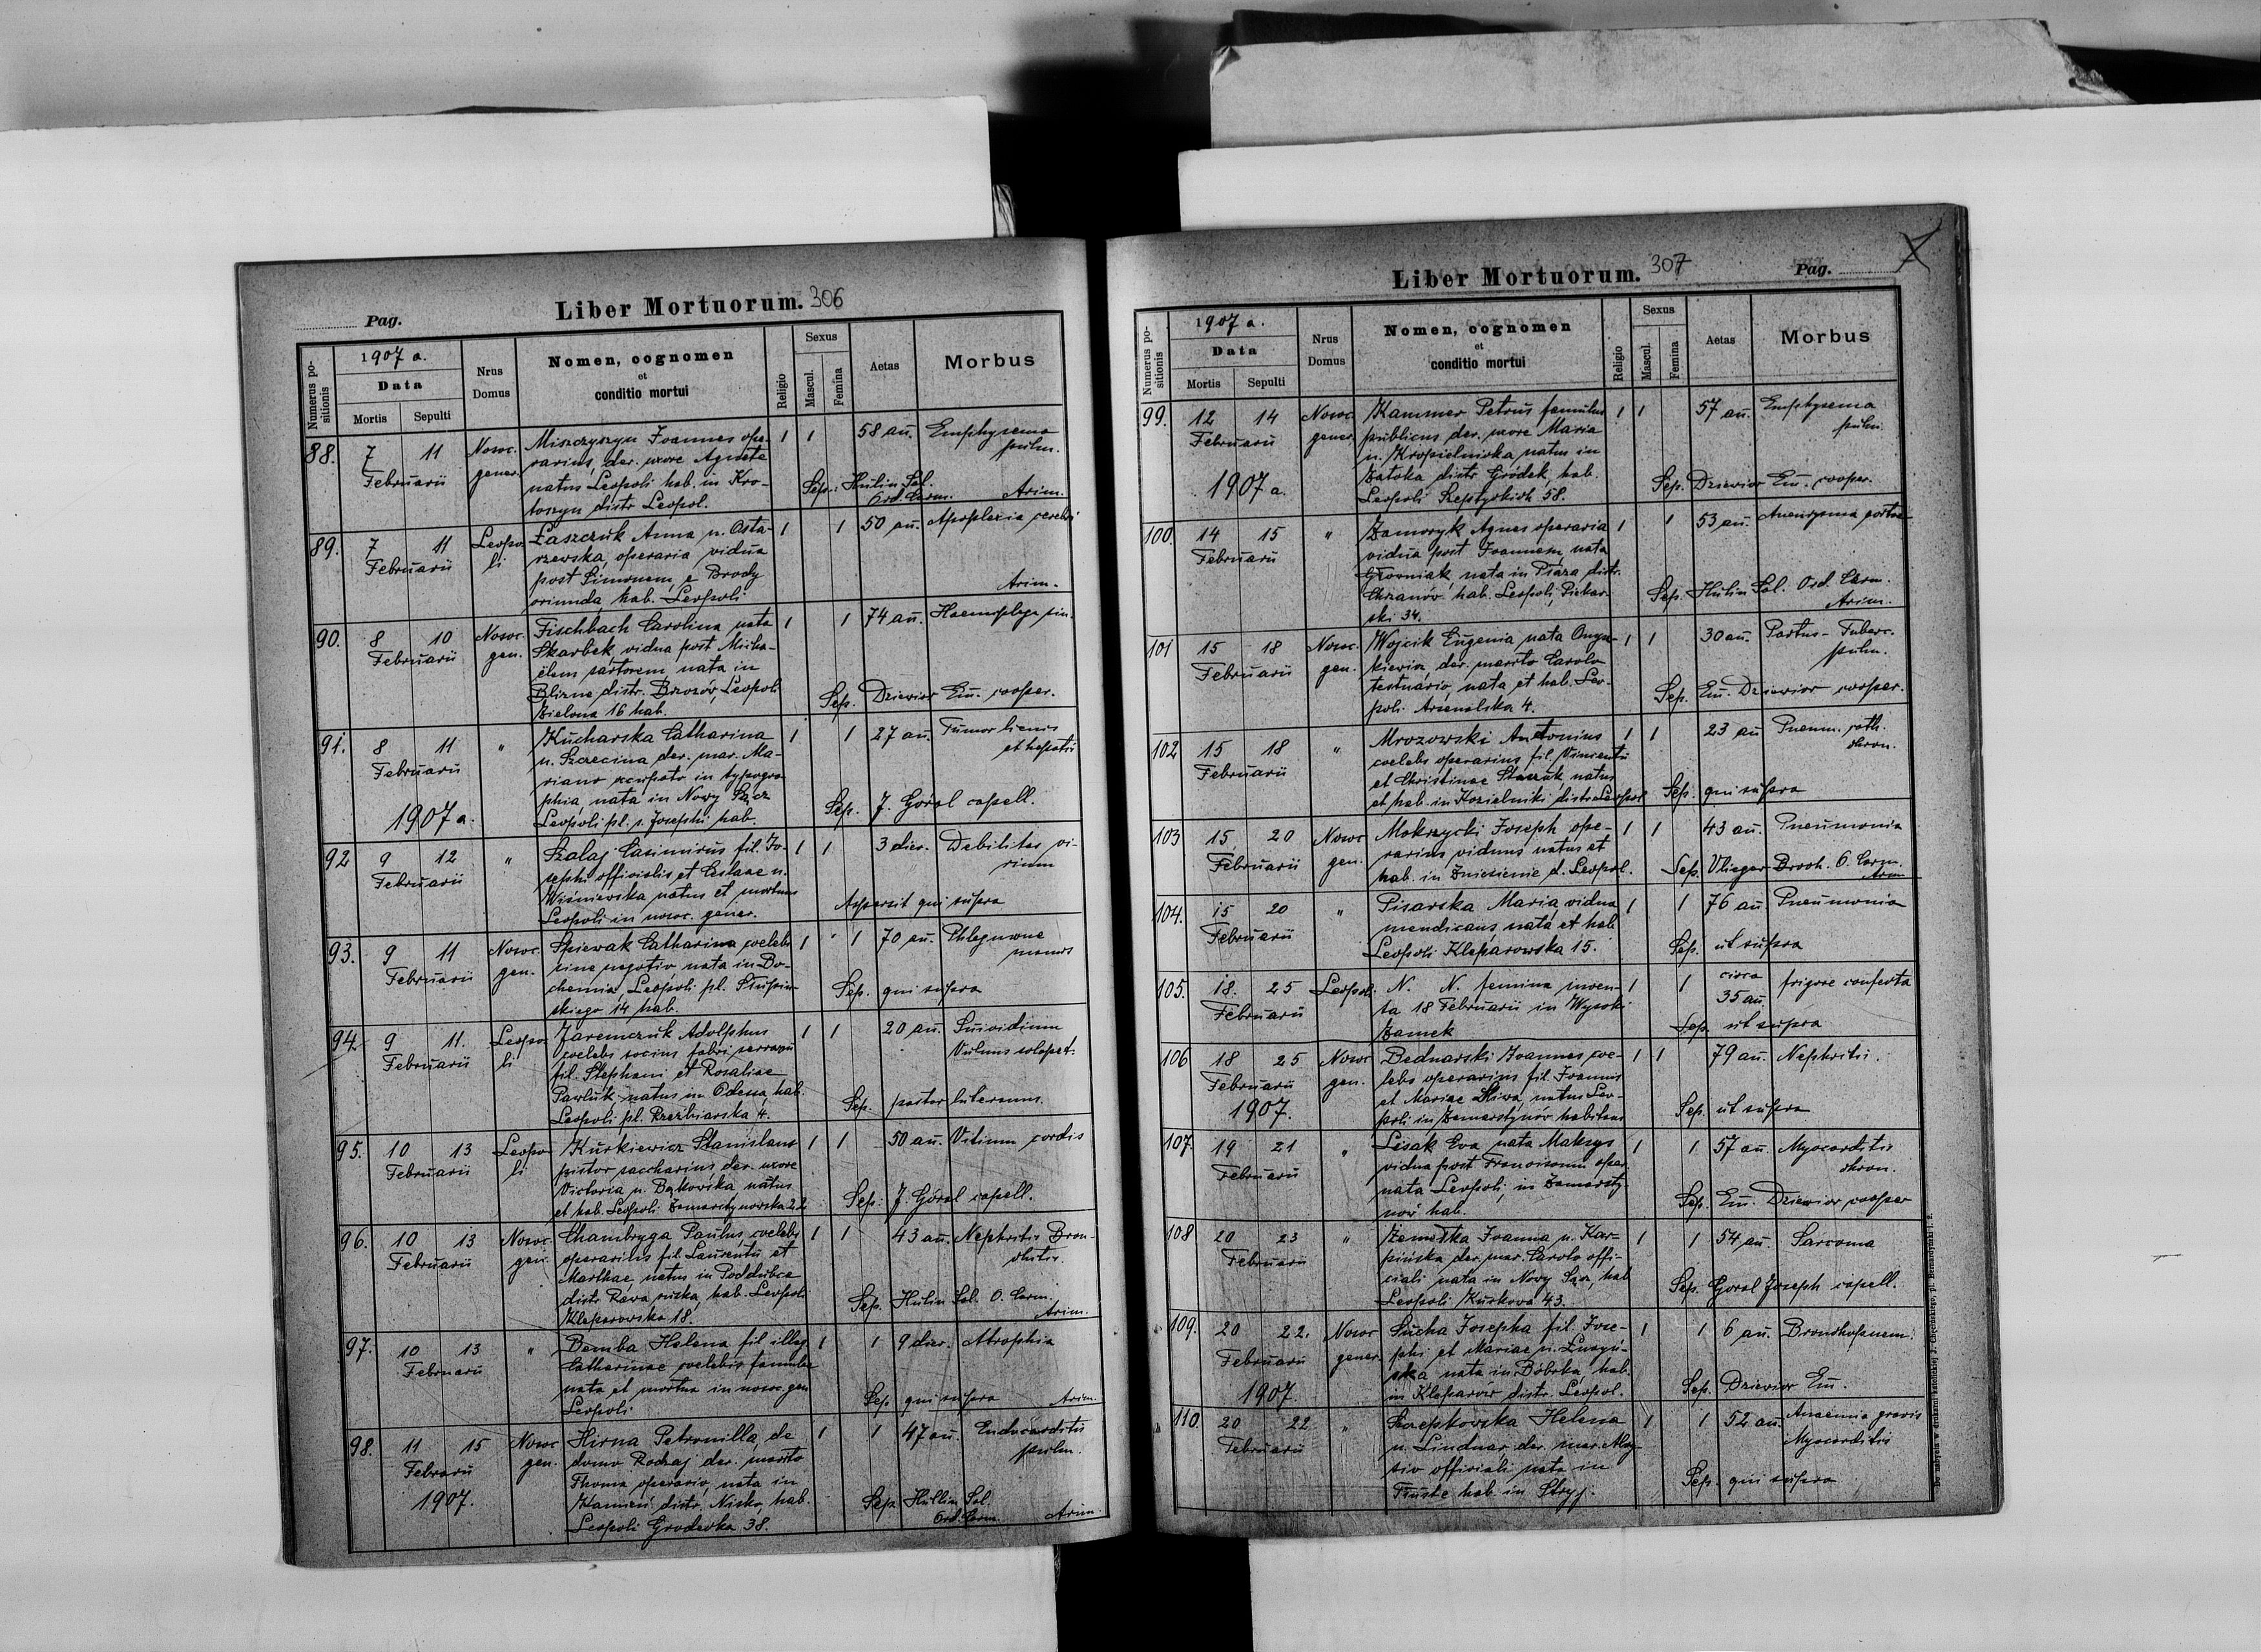 Pag.
Liber Mortuorum. 306
Numerus positionis
1907 a.
Data
Mortis
Sepulti
Nrus Domus
Nomen, cognomen
et
conditio mortui
Religio
Sexus
Mascul.
Femina
Aetas
Morbus
88. 7 11 Nosoc. Miszczyszyn Joannes ope- 1 1 58 an. Emphysema
Februarii gener. rarius, der. uxore Agneta pulm.
natus Leopoli hab. in Kro- Sep. Hulin Sol.
toszyn distr. Leopol. Ord. Carm. Arim.
89. 7 11 Leopo- Łaszczuk Anna n. Osta- 1 1 50 an. Apoplexia cerebri
Februarii li rzewska, operaria vidua
post Simonem, e Brody Arim.
oriunda, hab. Leopoli
90. 8 10 Nosoc. Fischbach Carolina nata 1 1 74 an. Haemiplega sin.
Februarii gen. Skarbek vidua post Micha-
ëlem sartorem, nata in
Blizne distr. Brzozów, Leopoli Sep. Dziewior Em. cooper.
Zielona 16 hab.
91. 8 11 " Kucharska Catharina 1 1 27 an. Tumor lienis
Februarii n. Szczecina der. mar. Ma- et hepatis
riano composit. in typogra-
phia nata in Nowy Sącz
1907 a. Leopoli pl. s. Josephi hab. Sep. J. Góral capell.
92 9 12 " Szalaj Casimirus fil. Jo- 1 1 3 dier. Debilitas vi-
Februarii sephi officialis et Ceslaae n. rium
Wiśniewska natus et mortuus
Leopoli in nosoc. gener. Aspersit qui supra
93. 9 11 Nosoc. Spiewak Catharina coelebs 1 1 70 an. Phlegmone
Februarii gen. sine negotio, nata in Bo- manus
chemia, Leopoli pl. Strupin-
skiego 14 hab. Sep. qui supra
94. 9 11. Leopo- Jaremczuk Adolphus 1 1 20 an. Suicidium
Februarii li coelebs socius fabri serrarii Vulnus sclopet.
fil. Stephani et Rosaliae
Pawluk natus in Odessa, hab.
Leopoli pl. Rzezbiarska 4. Sep. pastor luteranus.
95. 10 13 Leopo- Kurkiewicz Stanislaus 1 1 50 an. Vitium cordis
Februarii li pistor saccharius, der. uxore
Victoria n. Bąkowska natus
et hab. Leopoli Zamarstynowska 22 Sep. J. Góral capell.
96. 10 13 Nosoc. Chambryga Paulus, coelebs 1 1 43 an. Nephritis Bron-
Februarii gen. operarius fil. Laurentii et chitis.
Marthae, natus in Poddubce
distr. Rawa ruska, hab. Leopoli Sep. Hulin Sol. O. Carm.
Kleparowska 18. Arim.
97. 10 13 " Bemba Helena, fil. illeg. 1 1 9 dier. Atrophia
Februarii Catharinae coelebis famulae
nata et mortua in nosoc. gen. Sep. qui supra Arim.
Leopoli
98. 11 15 Nosoc. Hirna Petronilla, de 1 1 47 an. Endocarditis
Februarii gen. domo Rodzaj der. marito pulm.
1907. Thoma operario, nata in
Kamień distr. Nisko, hab. Sep. Hullin Sol.
Leopoli Grodecka 38. Ord. Carm. Arim.
Liber Mortuorum. 307
Pag.
Numerus positionis
1907 a.
Data
Mortis
Sepulti
Nrus Domus
Nomen, cognomen
et
conditio mortui
Religio
Sexus
Mascul.
Femina
Aetas
Morbus
99. 12 14 Nosoc. Kammer Petrus famulus 1 1 57 an. Emphysema
Februarii gener. publicus der. uxore Maria pulm.
n. Kropielnicka natus in
1907 a. Zatoka distr. Gródek, hab. Sep. Dziewior Em. cooper.
Leopoli Szeptyckich 58.
100. 14 15 " Zamoryk Agnes operaria 1 1 53 an. Aneurysma aortae
Februarii vidua post Joannem, nata
nata in Płaza distr.
Chrzanów hab. Leopoli, Piekar- Sep. Hulin Sol. Ord. Carm.
ski 34. Arim.
101 15 18 Nosoc. Wojcik Eugenia nata Onysz- 1 1 30 an. Partus - Tuberc.
Februarii gen. kiewicz, der. marito Carolo pulm.
nata et hab. Leo- Sep. Em. Dziewior cooper.
poli Arsenalska 4.
102 15 18 " Mrozowski Antonius 1 1 23 an. Pneum. cath.
Februarii coelebs operarius fil. Vincentii chron.
et Christinae Staszuk, natus
et hab. in Kozielniki distr. Leopol Sep. qui supra
103 15 20 Nosoc. Mokrzycki Joseph ope- 1 1 43 an. Pneumonia
Februarii gen. rarius viduus natus et
hab. in Zniesienie d. Leopol. Sep. Vlieger Broch. O. Carm.
Arim.
104. 15 20 " Pisarska Maria, vidua 1 1 76 an. Pneumonia
Februarii mendicans, nata et hab.
Leopoli Kleparowska 15. Sep. ut supra
105. 18. 25 Leopoli. N. N. femina inven- 1 1 circa 35 an. frigore confecta
Februarii ta 18 Februarii in Wysoki
Zamek Sep. ut supra
106 18 25 Nosoc. Bednarski Joannes coe- 1 1 79 an. Nephritis.
Februarii gen. lebs operarius fil. Joannis
1907. et Mariae Śliwa, natus Leo-
poli in Zamarstynów habitans Sep. ut supra
107. 19 21 " Lesak Eva, nata Maksys 1 1 57 an. Myocarditis
Februarii vidua post Franciscum oper. chron.
nata Leopoli, in Zamarsty-
nów hab. Sep. Em. Dziewior cooper
108 20 23 " Joanna n. Kar- 1 1 54 an. Sarcoma
Februarii pińska der. mar. Carolo offi-
ciali nata in Nowy Sącz, hab. Sep. Goral Joseph capell.
Leopoli Kurkowa 43.
109. 20 22. Nosoc. Sucha Josepha fil. Jose- 1 1 6 an. Bronchopneum.
Februarii gener. phi et Mariae n.
ska nata in Bóbrka, hab.
1907 in Kleparow distr. Leopol. Sep. Dziewior Em.
110. 20 22 " Szeptowska Helena 1 1 52 an. Anaemia gravis
Februarii n. Lindnar der. mar. Aloy- Myocarditis
sio officiali nata in
Truste hab. in Stryj. Sep. qui supra
Do nabycia w drukarni katolickiej J. Chęcińskiego, pl. Bernardyński l. 2.